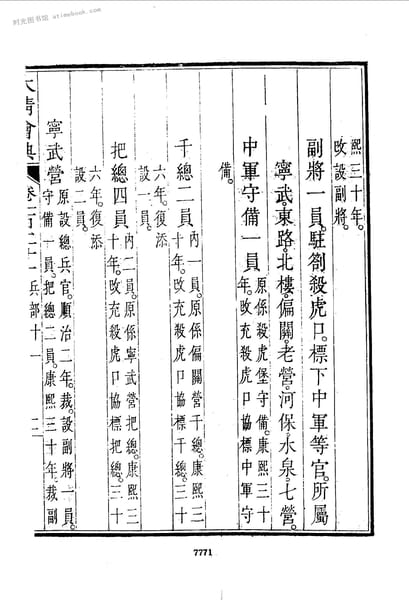 时光图书馆 - atimebook.com
熙三十年。
改設副將。
副將一員。駐劄殺虎口。標下中軍等官。所屬
寧武。東路。北樓。偏關。老營。河保。水泉。七營。
中軍守備一員 原係殺虎堡守備。康熙三十
年。改充殺虎口協標中軍守
備。
千總二員 內一員。原係偏關營千總。康熙三
十年。改充殺虎口協標千總。三十
六年。復添
設一員。
把總四員 內二員。原係寧武營把總。康熙三
十年。改充殺虎口協標把總。三十
六年。復添
設二員。
寧武營 原設總兵官。順治二年。裁。設副將一員。
守備一員。把總二員。康熙三十年。裁副
大清會典 卷一百二十一 兵部十一 二
7771